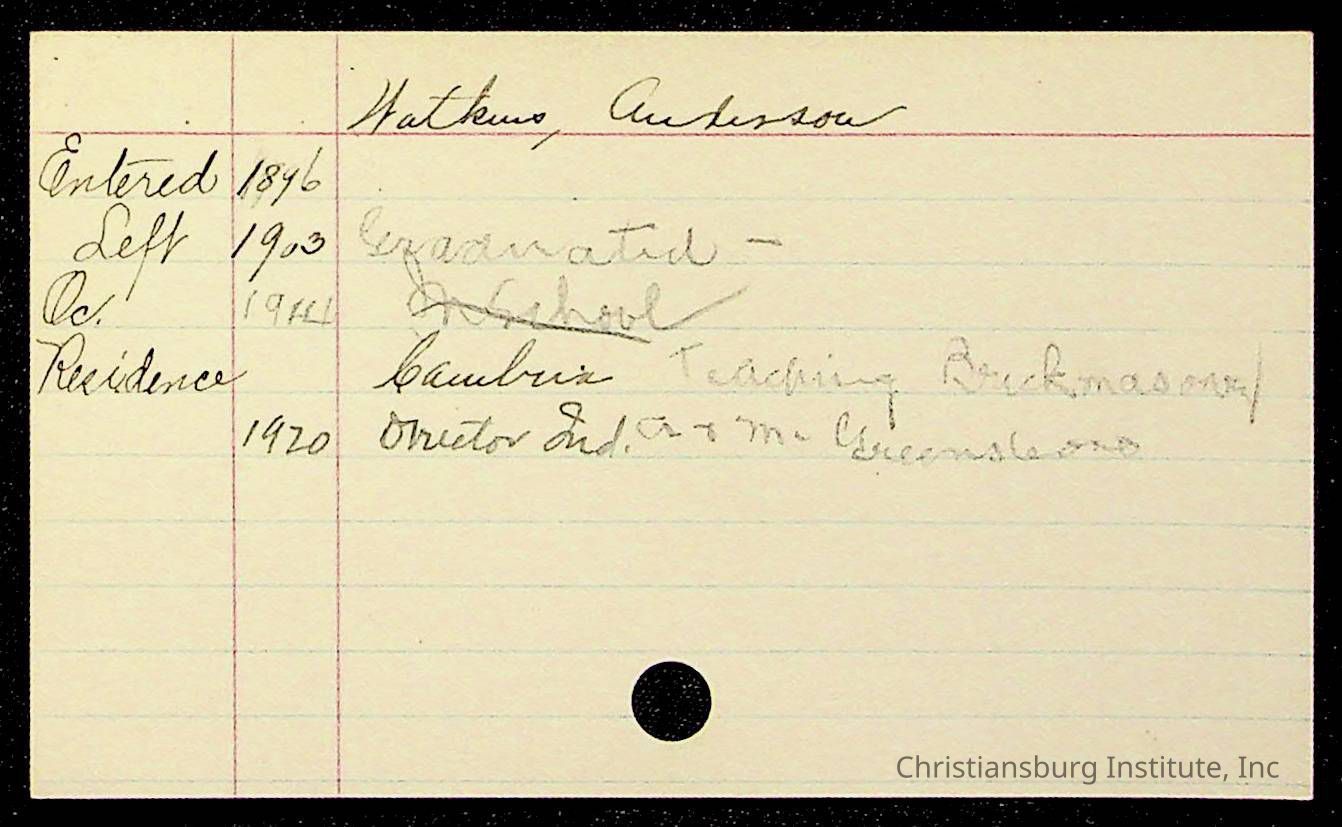 Watkins, Anderson
Entered 1896
Left 1903 Graduated -
Oc. 1914 In School
Residence Cambria Teaching Brickmasonry
1920 Director Ind. A & M. Greensboro
Christiansburg Institute, Inc